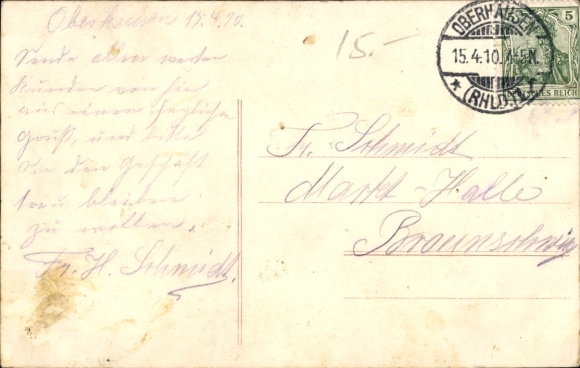 Oberhausen 15.4.10.
15.-
Sende allen werten
Kunden von hier
aus einen herzlichen
Gruß, und bitte
Sie den Geschäft
treu bleiben
zu wollen.
Fr. H. Schmidt.
OBERHAUSEN
15.4.10. 4-5N.
(RHLD.) 1
5
HES REICH
Fr. Schmidt
Markt-Halle
Braunschweig